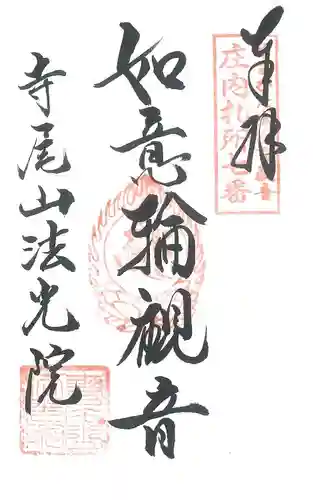 奉拝
庄内札所七番
如意輪観音
寺尾山法光院